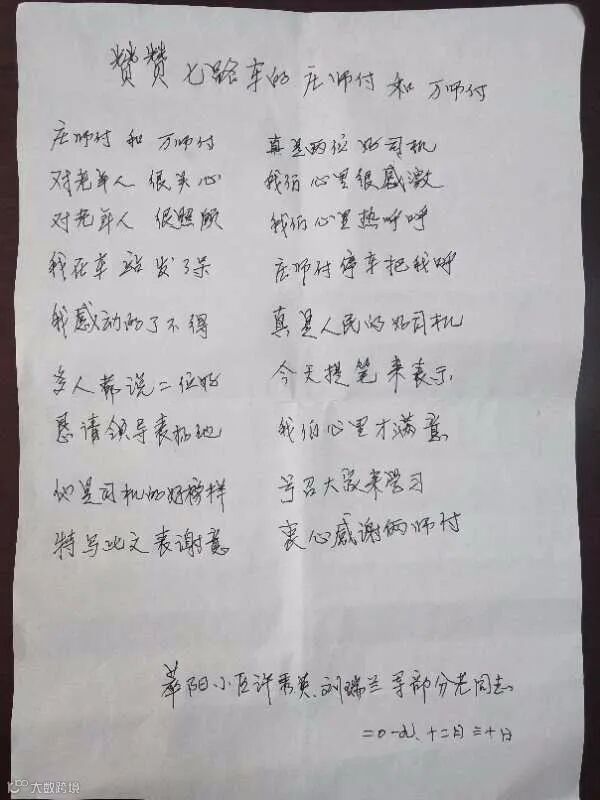 赞赞七路车的庄师付和万师付
庄师付和万师付 真是两位好司机
对老年人很关心 我们心里很感激
对老年人很照顾 我们心里热呼呼
我在车站发了呆 庄师付停车把我呼
我感动的了不得 真是人民的好司机
多人都说二位好 今天提笔来表示
恳请领导表扬他 我们心里才满意
他是司机的好榜样 号召大家来学习
特写此文表谢意 衷心感谢俩师付
阳小区许秀英、刘瑞兰等部分老同志
二0一九、十二月三十日
大数跨境